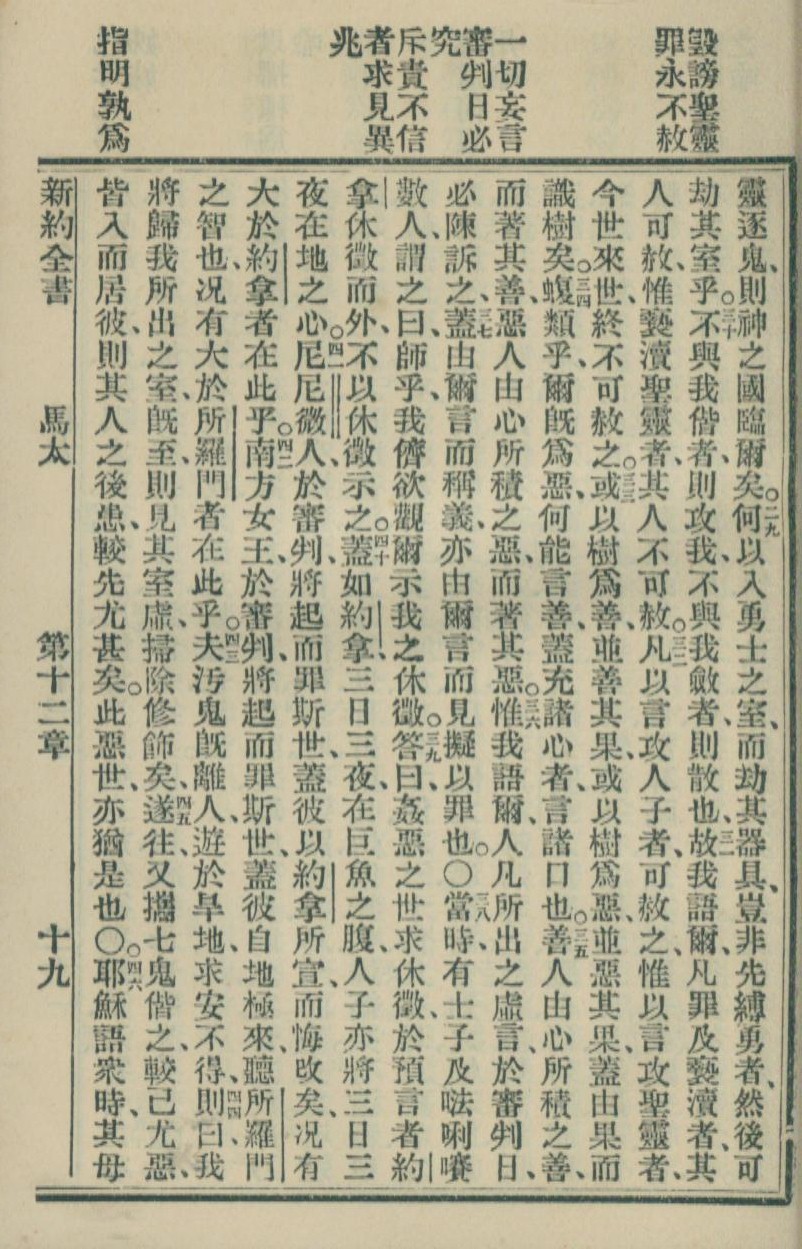 毀謗聖靈
罪永不赦
一切妄言
審判日必
究
斥責不信
者求見異
兆
指明孰爲
靈逐鬼、則神之國臨爾矣。二九何以入勇士之室、而劫其器具、豈非先縛勇者、然後可
劫其室乎。三十不與我偕者、則攻我、不與我斂者、則散也、三一故我語爾、凡罪及褻瀆者、其
人可赦、惟褻瀆聖靈者、其人不可赦。三二凡以言攻人子者、可赦之、惟以言攻聖靈者、
今世來世、終不可赦之。三三或以樹爲善、並善其果、或以樹爲惡、並惡其果、蓋由果而
識樹矣。三四蝮類乎、爾旣爲惡、何能言善、蓋充諸心者、言諸口也。三五善人由心所積之善、
而著其善、惡人由心所積之惡、而著其惡。三六惟我語爾、人凡所出之虛言、於審判日、
必陳訴之、三七蓋由爾言而稱義、亦由爾言而見擬以罪也。〇三八當時、有士子及𠵽唎㘔
數人、謂之曰、師乎、我儕欲觀爾示我之休徵。三九答曰、姦惡之世求休徵、於預言者約
拿休徵而外、不以休徵示之。四十蓋如約拿、三日三夜、在巨魚之腹、人子亦將三日三
夜在地之心。四一尼尼微人於審判、將起而罪斯世、蓋彼以約拿所宣、而悔改矣、况有
大於約拿者在此乎。四二南方女王、於審判、將起而罪斯世、蓋彼自地極來、聽所羅門
之智也、况有大於所羅門者在此乎。四三夫汚鬼旣離人、遊於旱地、求安不得、四四則曰、我
將歸我所出之室、旣至、則見其室虛、掃除修飾矣、四五遂往、又攜七鬼偕之、較己尤惡、
皆入而居彼、則其人之後患、較先尤甚矣。此惡世、亦猶是也。〇四六耶穌語衆時、其母
新約全書 馬太 第十二章 十九